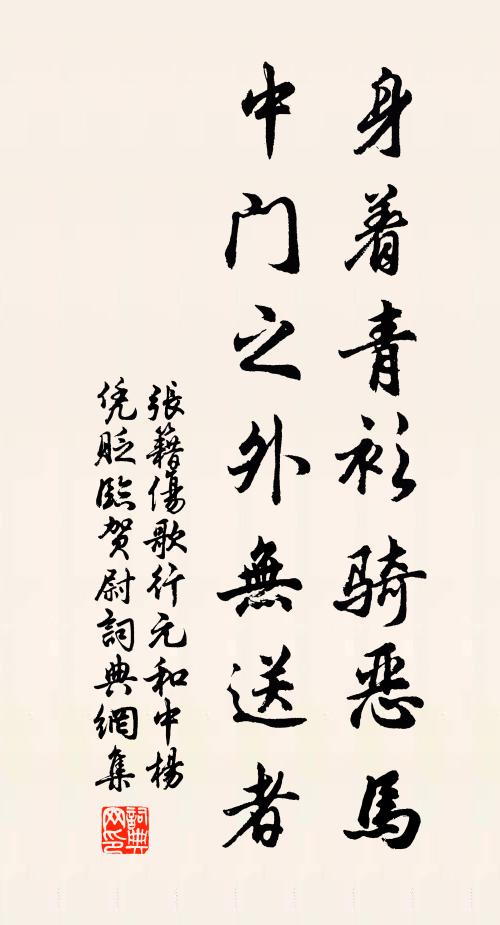 身着青衫骑恶馬
中門之外無送者
張籍傷歌行元和中楊
凭貶臨贺尉詞典網集
詞典
网印